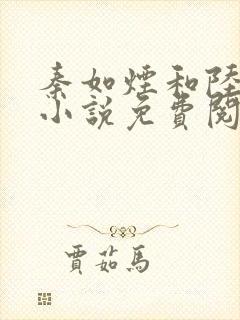 秦如煙和陸
小說免費閱
賈茹馬